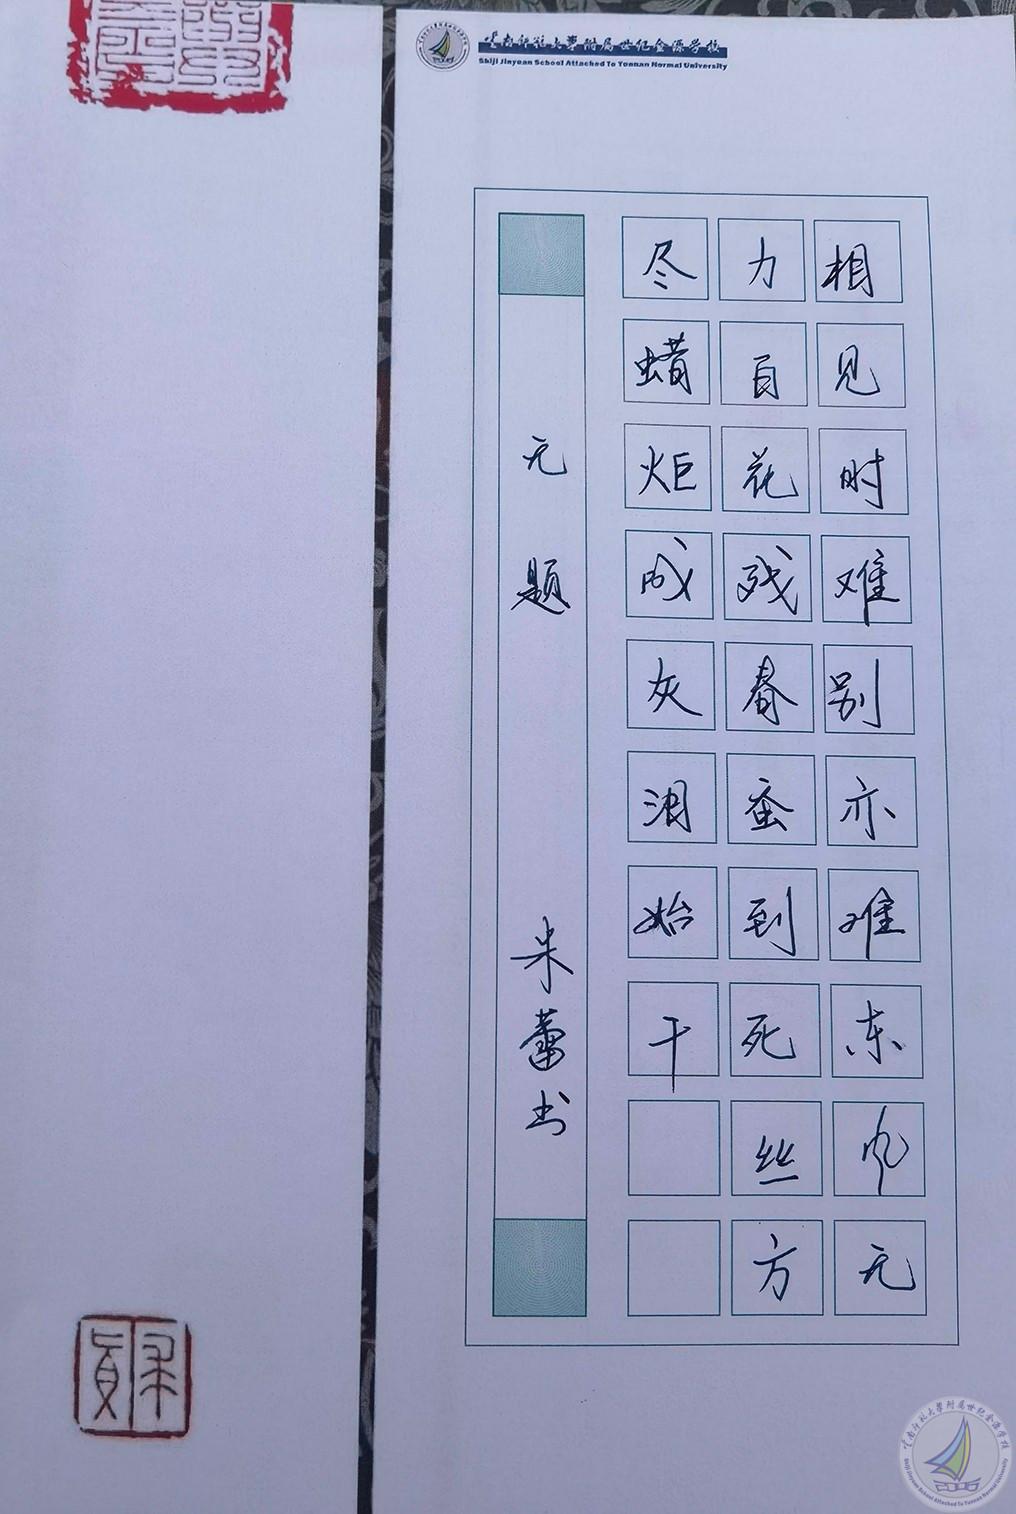 云南师范大學附属世纪金源学校
Shiji Jinyuan School Attached To Yunnan Normal University
相见时难别亦难东风无
力百花残春蚕到死丝方
尽蜡炬成灰泪始干
无题 朱蕾书
云南师范大學附属世纪金源学校
Shiji Jinyuan School Attached To Yunnan Normal University